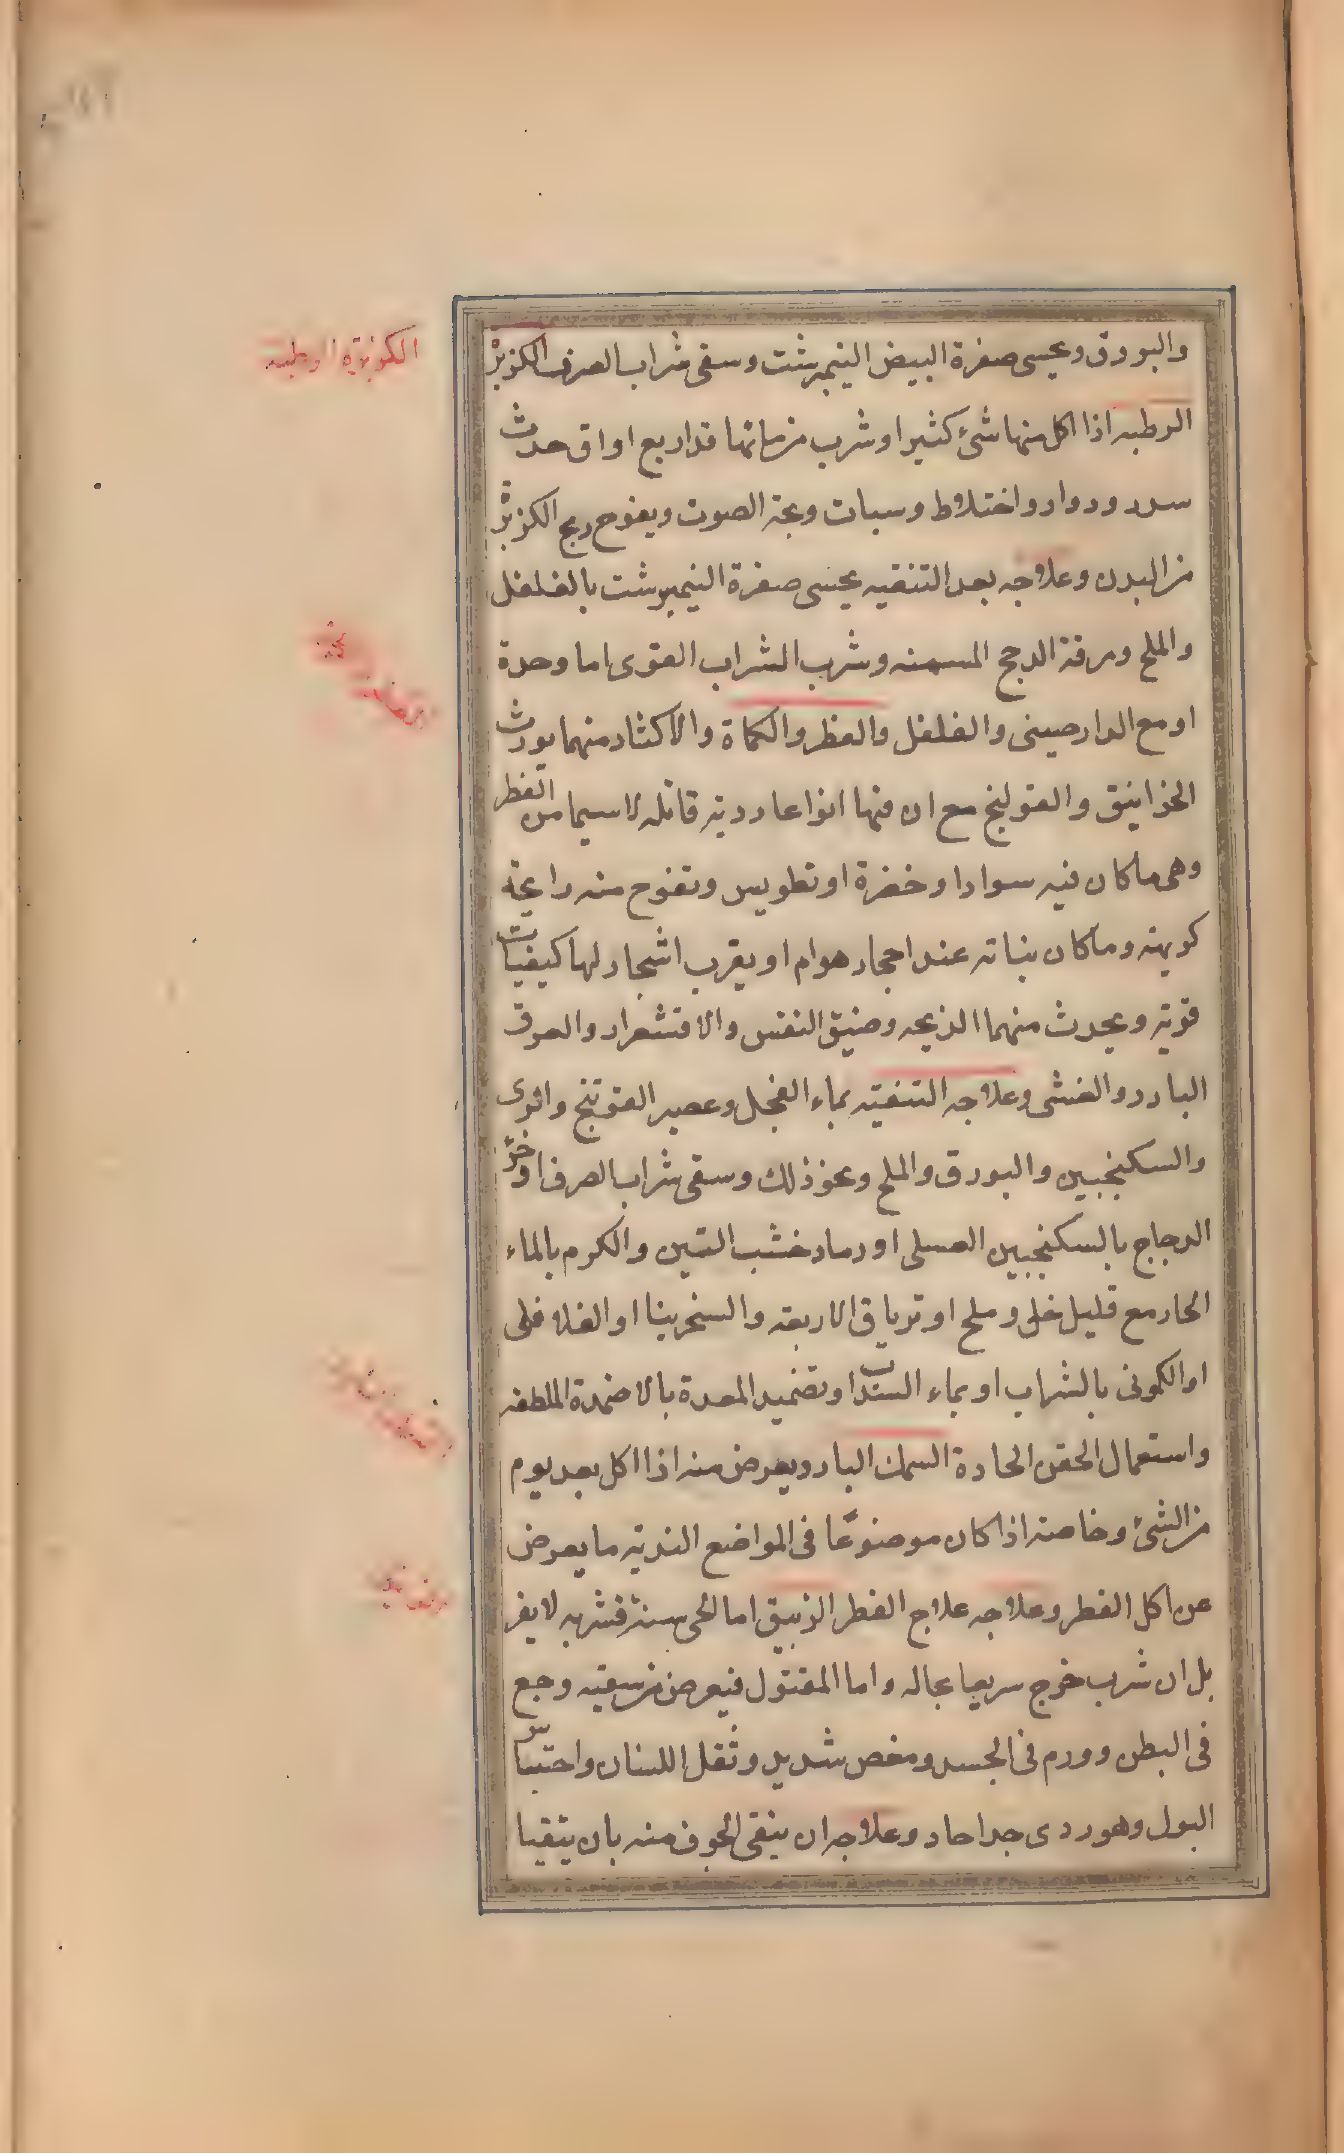 والبورق ويحسى صفرة البيض النيمبرشت وسقى شراب الصرف الكزبرة
الرطبه اذا اكل منها شئ كثير او شرب من مائها قدر اربع اواق حدث
سدر ودوار واختلاط وسبات وبحة الصوت ويفوح ريح الكزبرة
من البدن وعلاجه بعد التنقيه يحسى صفرة النيمبرشت بالفلفل
والملح ومرقة الدجج المسمنه وشرب الشراب القوى اما وحدة
او مع الدارصينى والفلفل والفطر والكماة والاكثار منهما يورث
الخوانيق والقولنج مع ان فيها انواعا رديه قاتله لا سيما من الفطر
وهى ما كان فيه سواد او خضرة او تطويس وتفوح منه رايحة
كريهه وما كان نباته عند احجار هوام او بقرب اشجار لها كيفيات
قويه ويحدث منهما الذبحه وضيق النفس والاقشعرار والعرق
البارد والغشى وعلاجه التنقيه بماء الفجل وعصير الفوتنج
والسكنجبين والبورق والملح ونحو ذلك وسقى شراب الصرف او خرؤ
الدجاج بالسكنجبين العسلى او رماد خشب التين والكرم بالماء
الحار مع قليل خلى وملح او ترياق الاربعه والسنجرينا او الفلافلى
او الكمونى بالشراب او بماء السداب او تضميد المعدة بالاضمدة الملطفه
واستعمال الحقن الحادة السمك البارد ويعرض منه اذا اكل بعد يوم
من الشئ وخاصه اذا كان موضوعًا فى المواضع النديه ما يعرض
عن اكل الفطر وعلاجه علاج الفطر الزيبق اما الحى منه فشربه لا يضر
بل ان شرب خرج سريعا بحاله واما المقتول فيعرض من سقيه وجع
فى البطن وورم فى الجسد ومغص شديد وثقل اللسان واحتباس
البول وهو ردى جدا حاد وعلاجه ان ينقى الجوف منه بان يتقيا
الكزبرة الرطبه